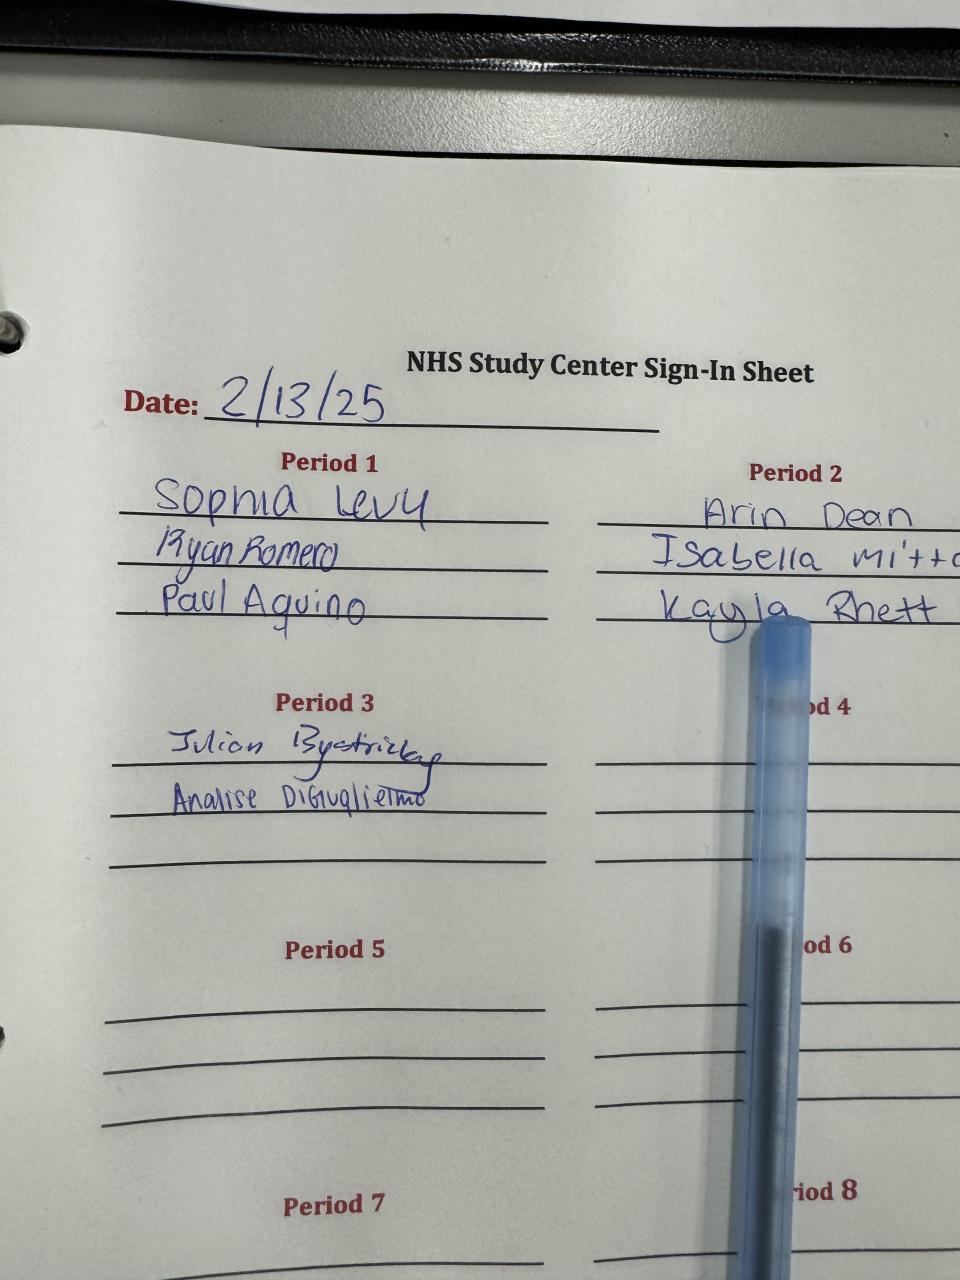 NHS Study Center Sign-In Sheet
Date: 2/13/25
Period 1
Sophia Levy
Ryan Romero
Paul Aquino
Period 2
Arin Dean
Isabella
Kayla Rhett
Period 3
Julian Bystricky
Analise DiGuglielmo
od 4
Period 5
od 6
Period 7
riod 8